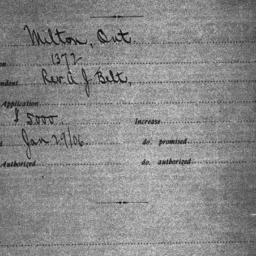 Milton, Ont.
on 1372
ndent Rev. A. J. Belt,
Application
$ 5000. Increase
Jan 29/06. do. promised
Authorized do. authorized